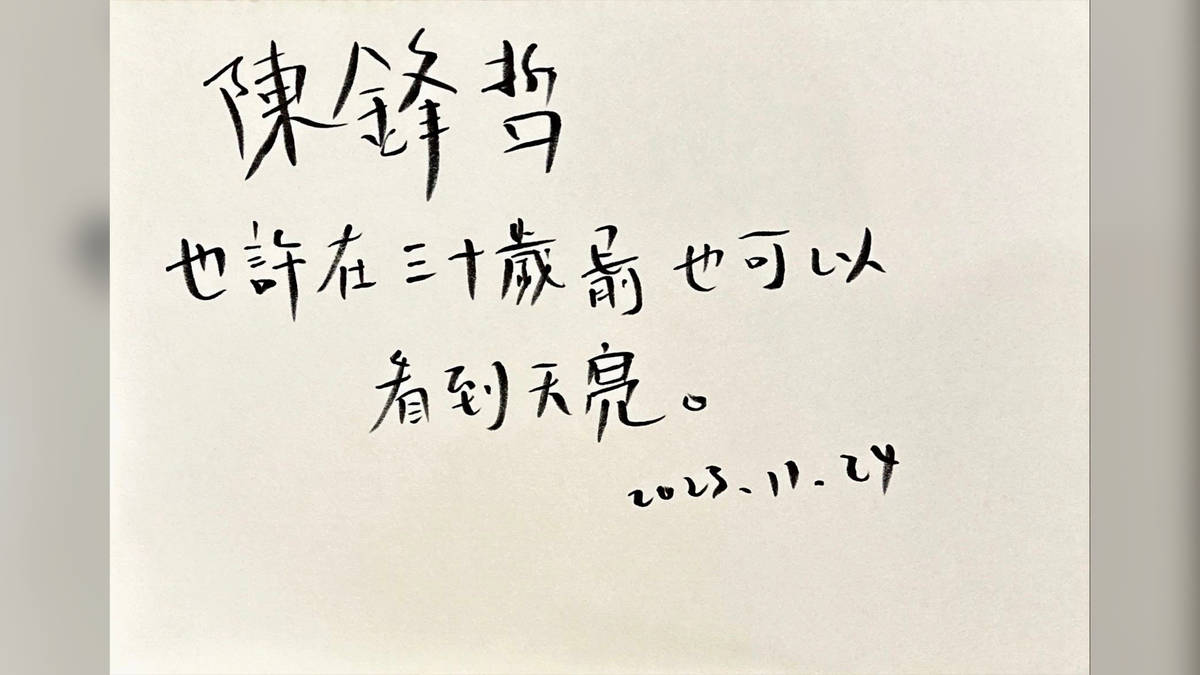 陳鋒哲
也許在三十歲前也可以
看到天亮。
2023.11.24